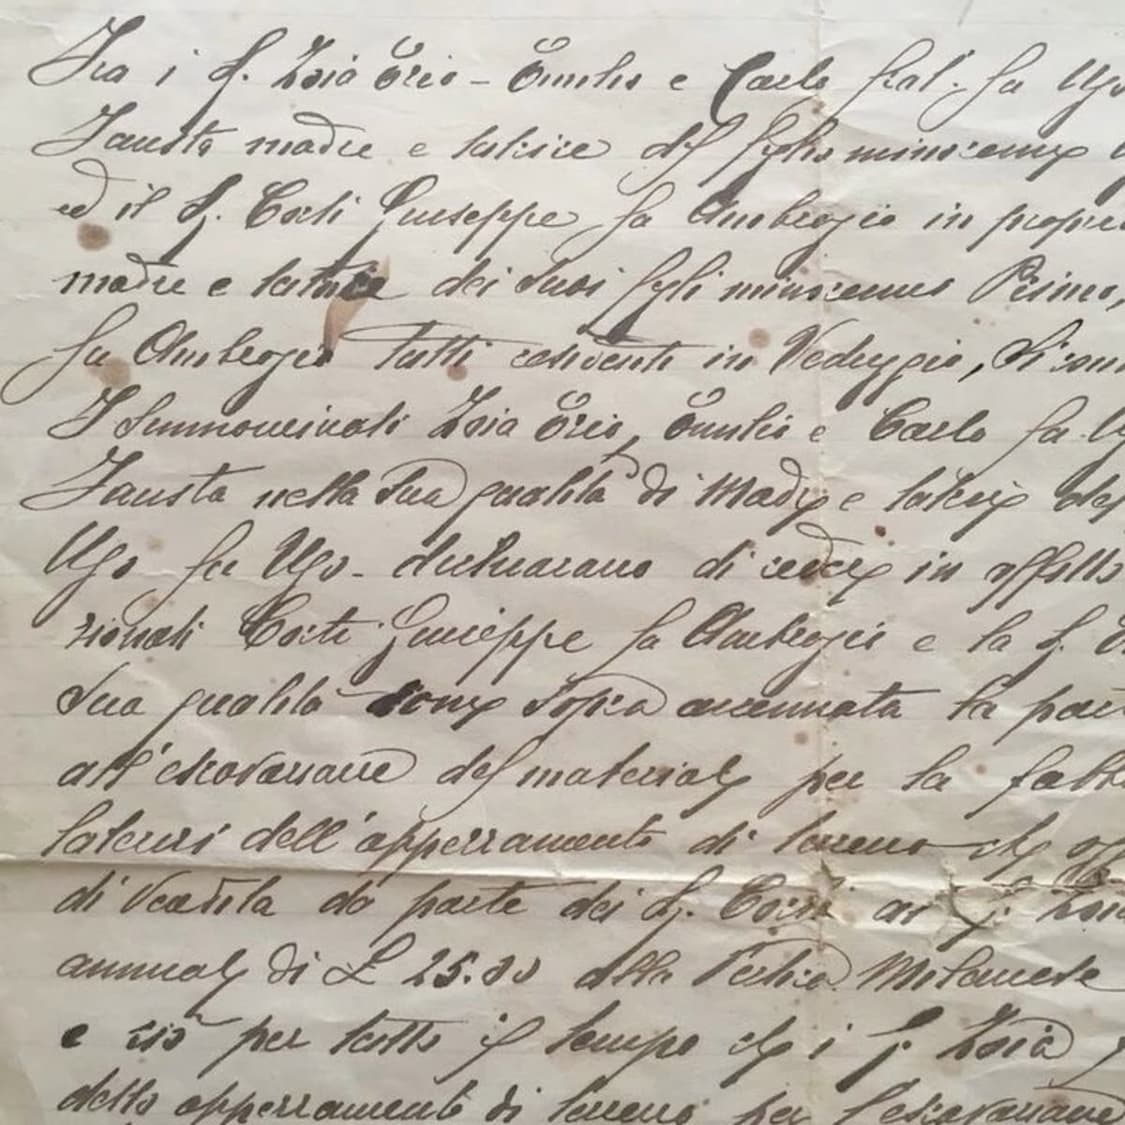 Fra i S. Zoia Ezio - Emilio e Carlo frat. fu Ugo
Fausta madre e tutrice del figlio minorenne
ed il S. Corti Giuseppe fu Ambrogio in propri
madre e tutrice dei suoi figli minorenni Primo,
fu Ambrogio tutti residenti in Veduggio, si con
I sunnominati Zoia Ezio, Emilio e Carlo fu U
Fausta nella sua qualità di Madre e tutrice del
Ugo fu Ugo - dichiarano di cedere in affitto
zionati Corti Giuseppe fu Ambrogio e la S.
sua qualità come sopra accennata la par
all'escavazione del materiale per la fabb
laterizi dell'apperzamento di terreno che
di vendita da parte dei S. Corti ai S. Zoia
annuale di L 25.00 alla Pertica Milanese
e ciò per tutto il tempo che i S. Zoia
dello apperzamento di terreno per l'escavazione